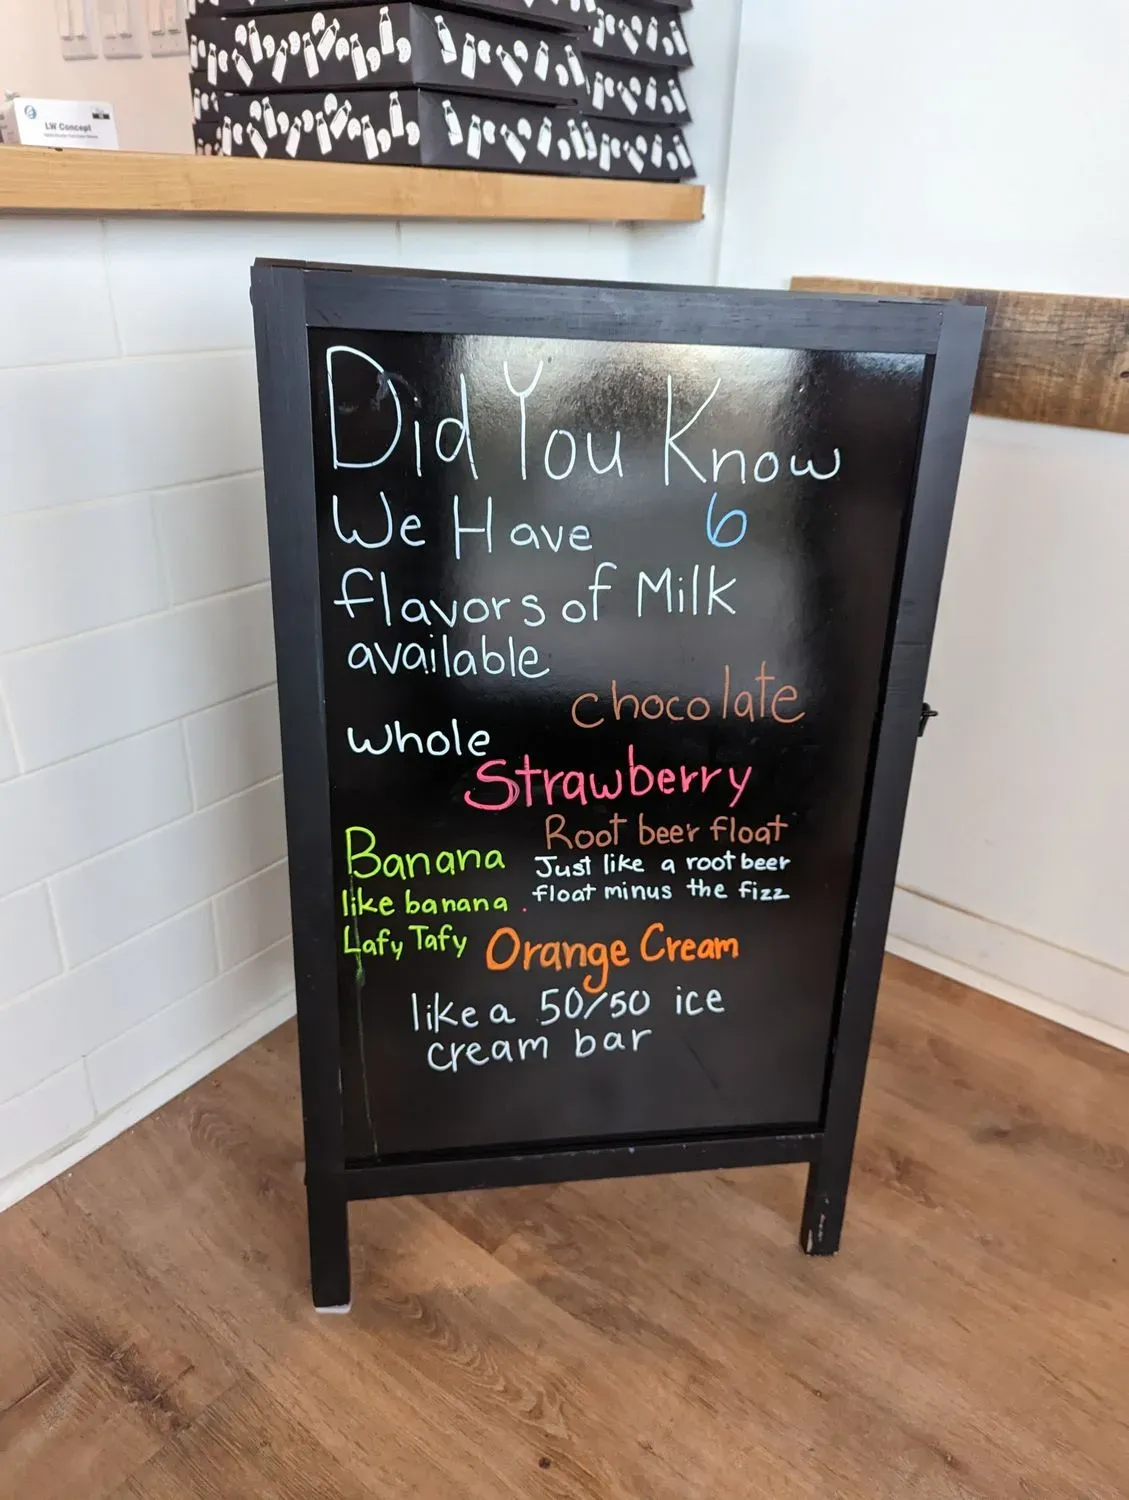 LW Concept
Did You Know
We Have 6
flavors of Milk
available
chocolate
whole
Strawberry
Banana
like banana
Lafy Tafy
Root beer float
Just like a root beer
float minus the fizz
Orange Cream
like a 50/50 ice
cream bar